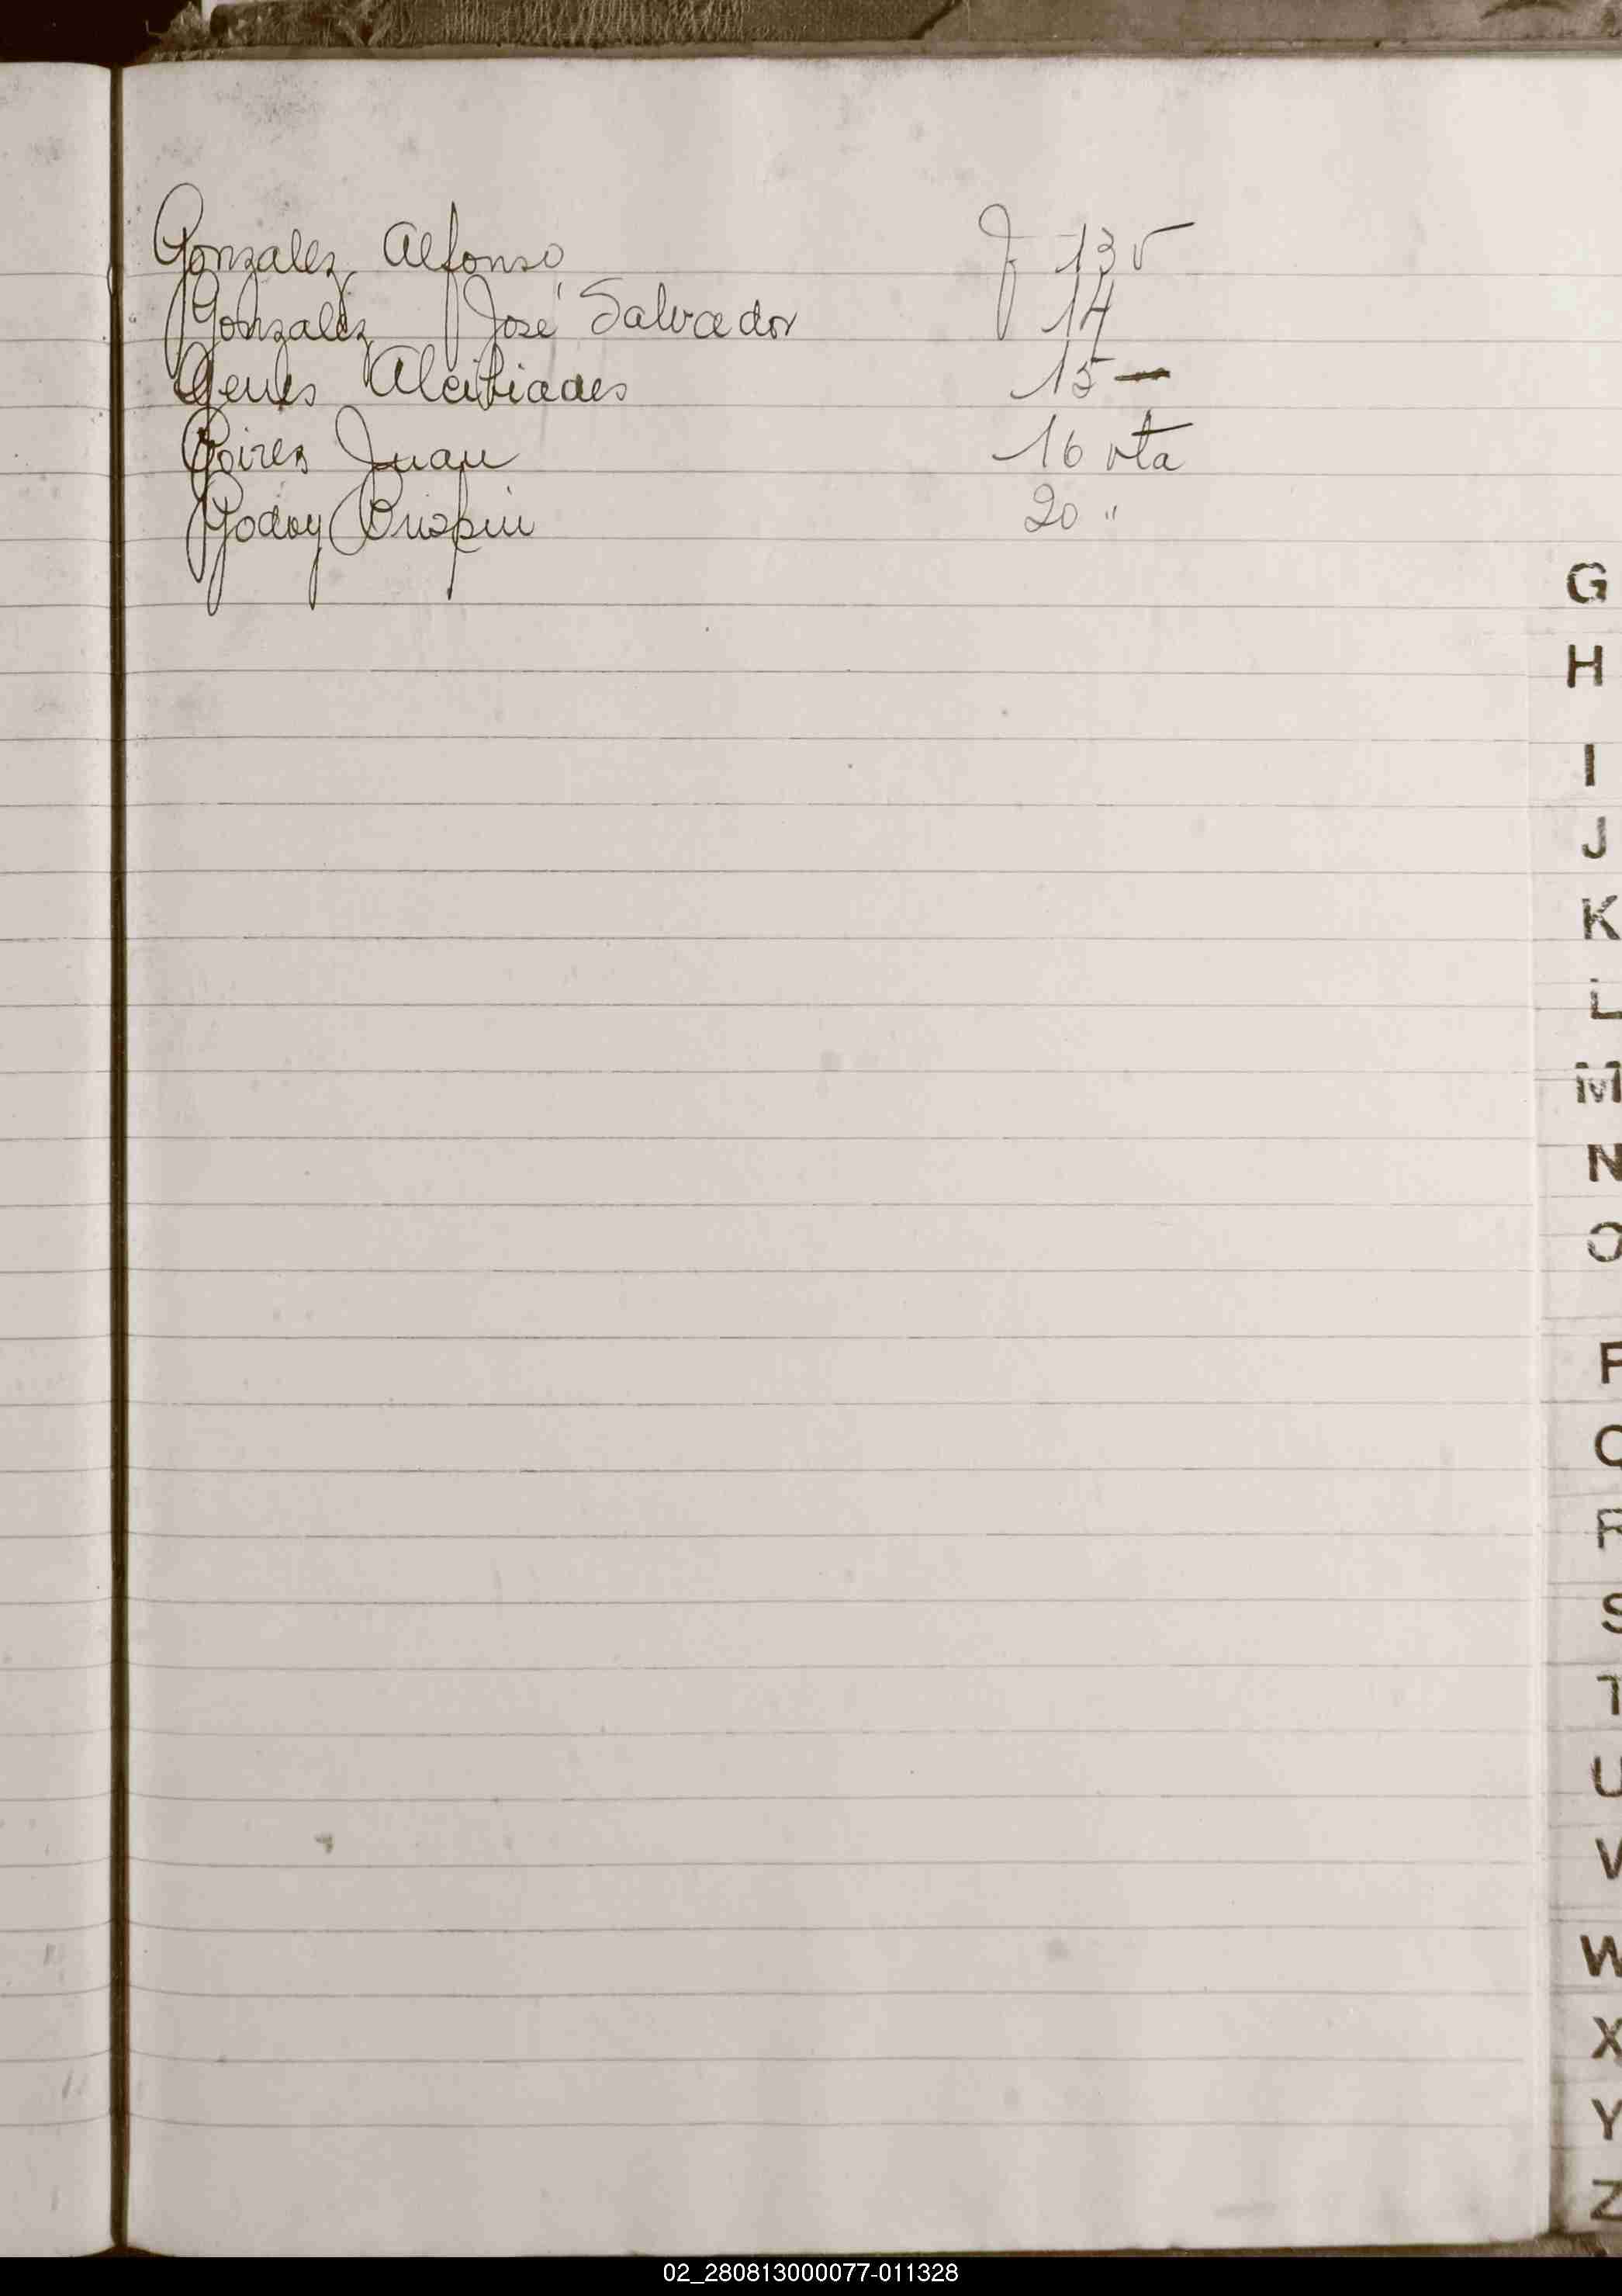 Gonzalez Alfonso f 13 v
Gonzalez José Salvador 14
Genes Alcibiades 15 —
Goirez Juan 16 vta
Godoy Crispin 20 "
G
H
I
J
K
L
M
N
O
P
Q
R
S
T
U
V
W
X
Y
Z
02_280813000077-011328